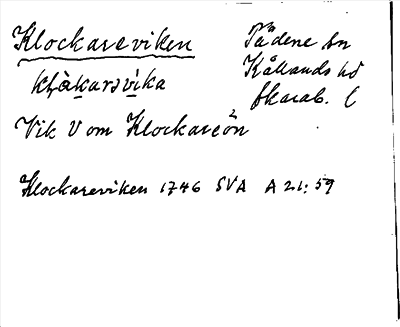 Klockareviken
Tådene sn
Kållands hd
Skarab. l
klåkarəvika
Vik V om Klockareön
Klockareviken 1746 SVA A 21:59